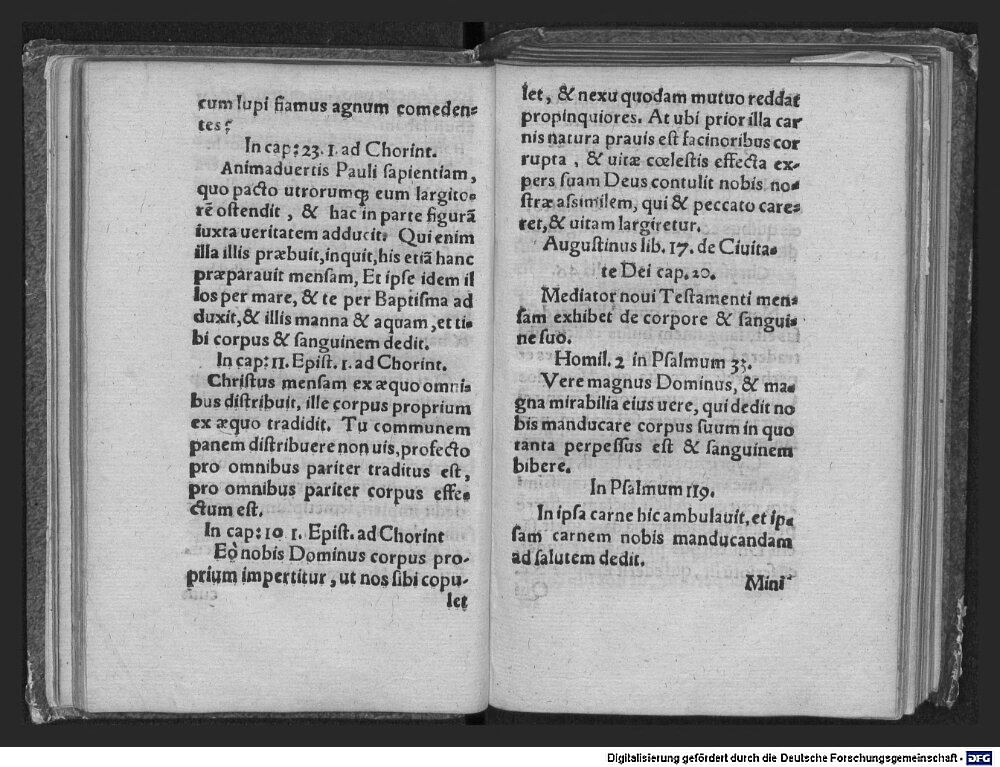 cum lupi fiamus agnum comeden⸗
tes?
In cap: 23. 1. ad Chorint.
Animaduertis Pauli sapientiam,
quo pacto utrorumq; eum largito⸗
rē ostendit, & hac in parte figurā
iuxta ueritatem adducit. Qui enim
illa illis præbuit, inquit, his etiā hanc
præparauit mensam, Et ipse idem il
los per mare, & te per Baptisma ad
duxit, & illis manna & aquam, et ti⸗
bi corpus & sanguinem dedit.
In cap: 11. Epist. 1. ad Chorint.
Christus mensam ex æquo omni⸗
bus distribuit, ille corpus proprium
ex æquo tradidit. Tu communem
panem distribuere non uis, profecto
pro omnibus pariter traditus est,
pro omnibus pariter corpus effe⸗
ctum est.
In cap: 10 1. Epist. ad Chorint
Eò nobis Dominus corpus pro⸗
prium impertitur, ut nos sibi copu⸗
let
let, & nexu quodam mutuo reddat
propinquiores. At ubi prior illa car
nis natura prauis est facinoribus cor
rupta, & uitæ cœlestis effecta ex⸗
pers suam Deus contulit nobis no⸗
stræ assimilem, qui & peccato care⸗
ret, & uitam largiretur.
Augustinus lib. 17. de Ciuita⸗
te Dei cap. 20.
Mediator noui Testamenti men⸗
sam exhibet de corpore & sangui⸗
ne suo.
Homil. 2 in Psalmum 33.
Vere magnus Dominus, & ma⸗
gna mirabilia eius uere, qui dedit no
bis manducare corpus suum in quo
tanta perpessus est & sanguinem
bibere.
In Psalmum 119.
In ipsa carne hic ambulauit, et ip⸗
sam carnem nobis manducandam
ad salutem dedit.
Mini
Digitalisierung gefördert durch die Deutsche Forschungsgemeinschaft - DFG